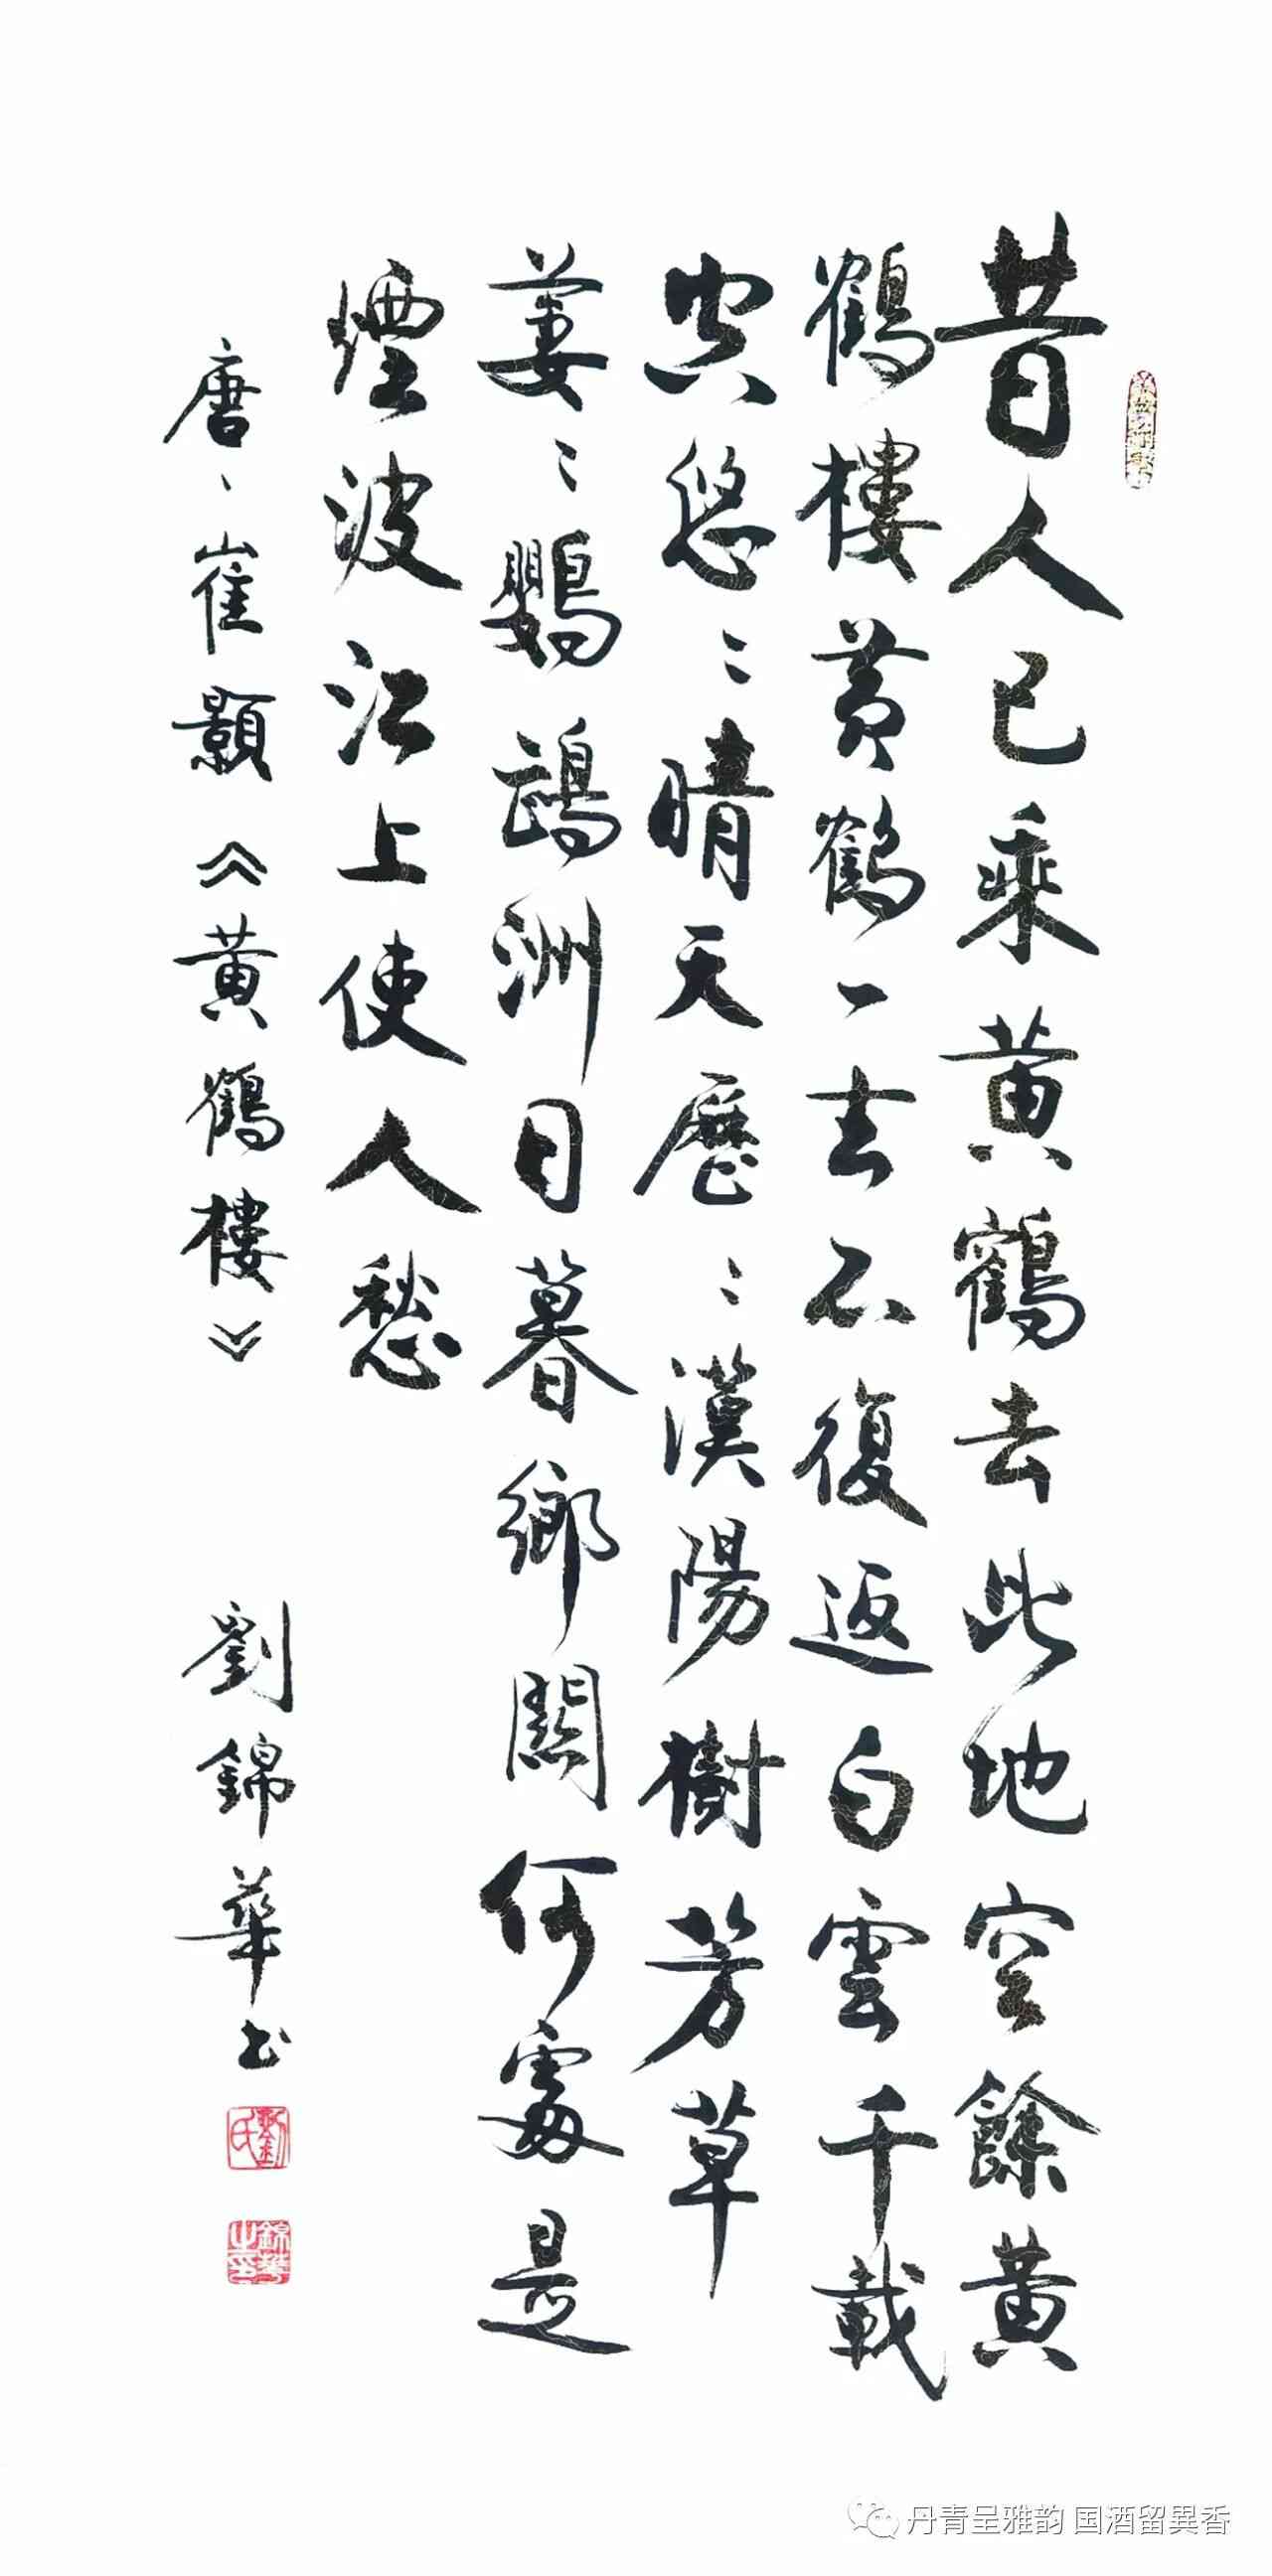 昔人已乘黄鶴去此地空餘黄
鶴樓黄鶴一去不復返白雲千載
空悠〻晴天歷〻漢陽樹芳草
萋〻鸚鵡洲日暮鄉關何處是
煙波江上使人愁
唐、崔顥《黄鶴樓》 劉錦華书
劉氏
錦華之印
丹青呈雅韵 国酒留異香